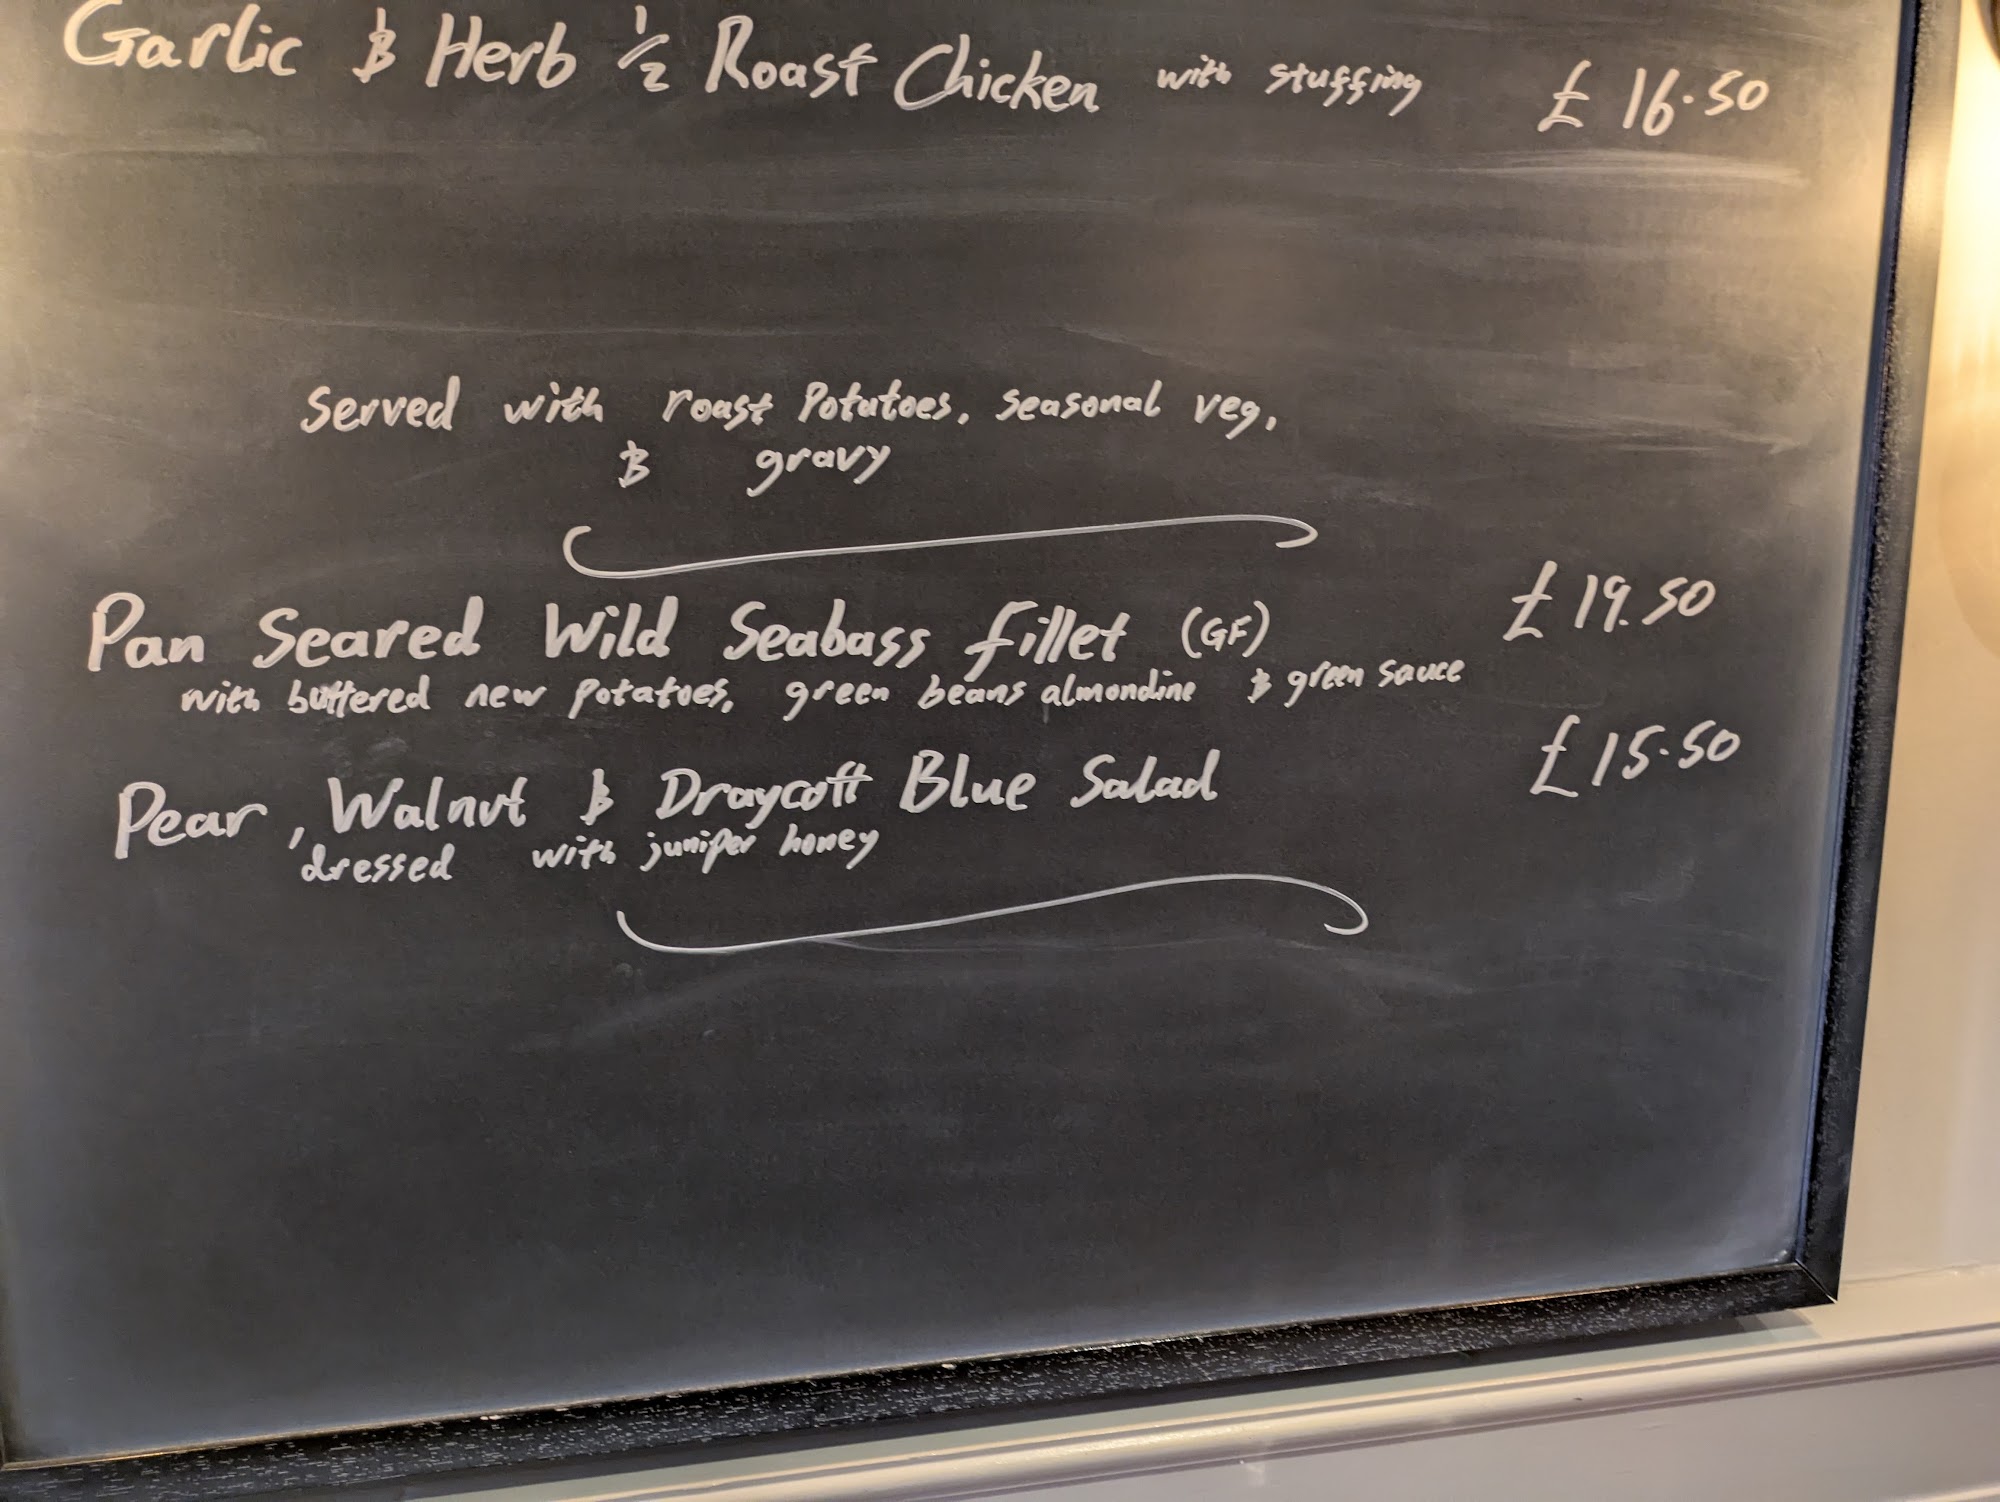 Garlic & Herb 1/2 Roast Chicken with stuffing £16.50
Served with roast Potatoes, seasonal veg,
& gravy
Pan Seared Wild Seabass fillet (GF) £19.50
with buttered new potatoes, green beans almondine & green sauce
Pear, Walnut & Draycott Blue Salad £15.50
dressed with juniper honey